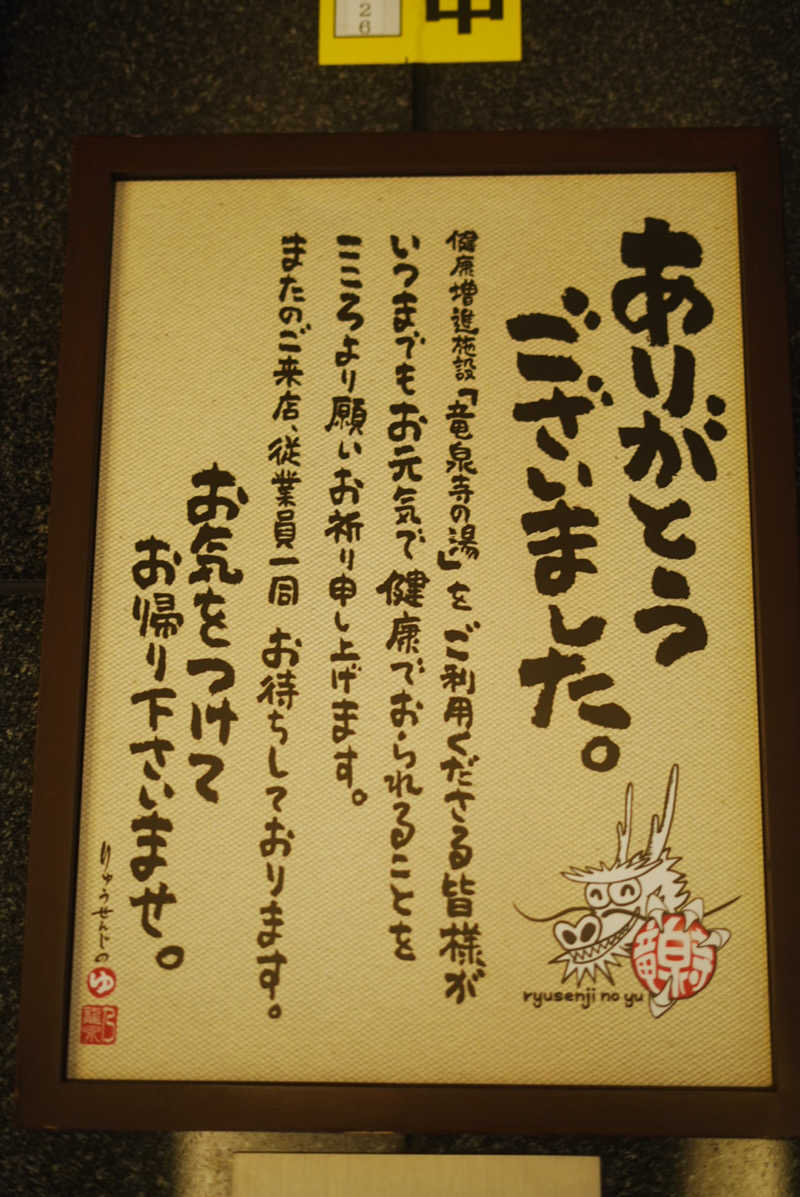 26
中
ありがとう
ございました。
健康増進施設「竜泉寺の湯」を ご利用くださる皆様が
いつまでもお元気で 健康でおられることを
こころより願いお祈り申し上げます。
またのご来店、従業員一同 お待ちしております。
お気をつけて
お帰り下さいませ。
りゅうせんじの
ゆ
竜泉寺
ryusenji no yu